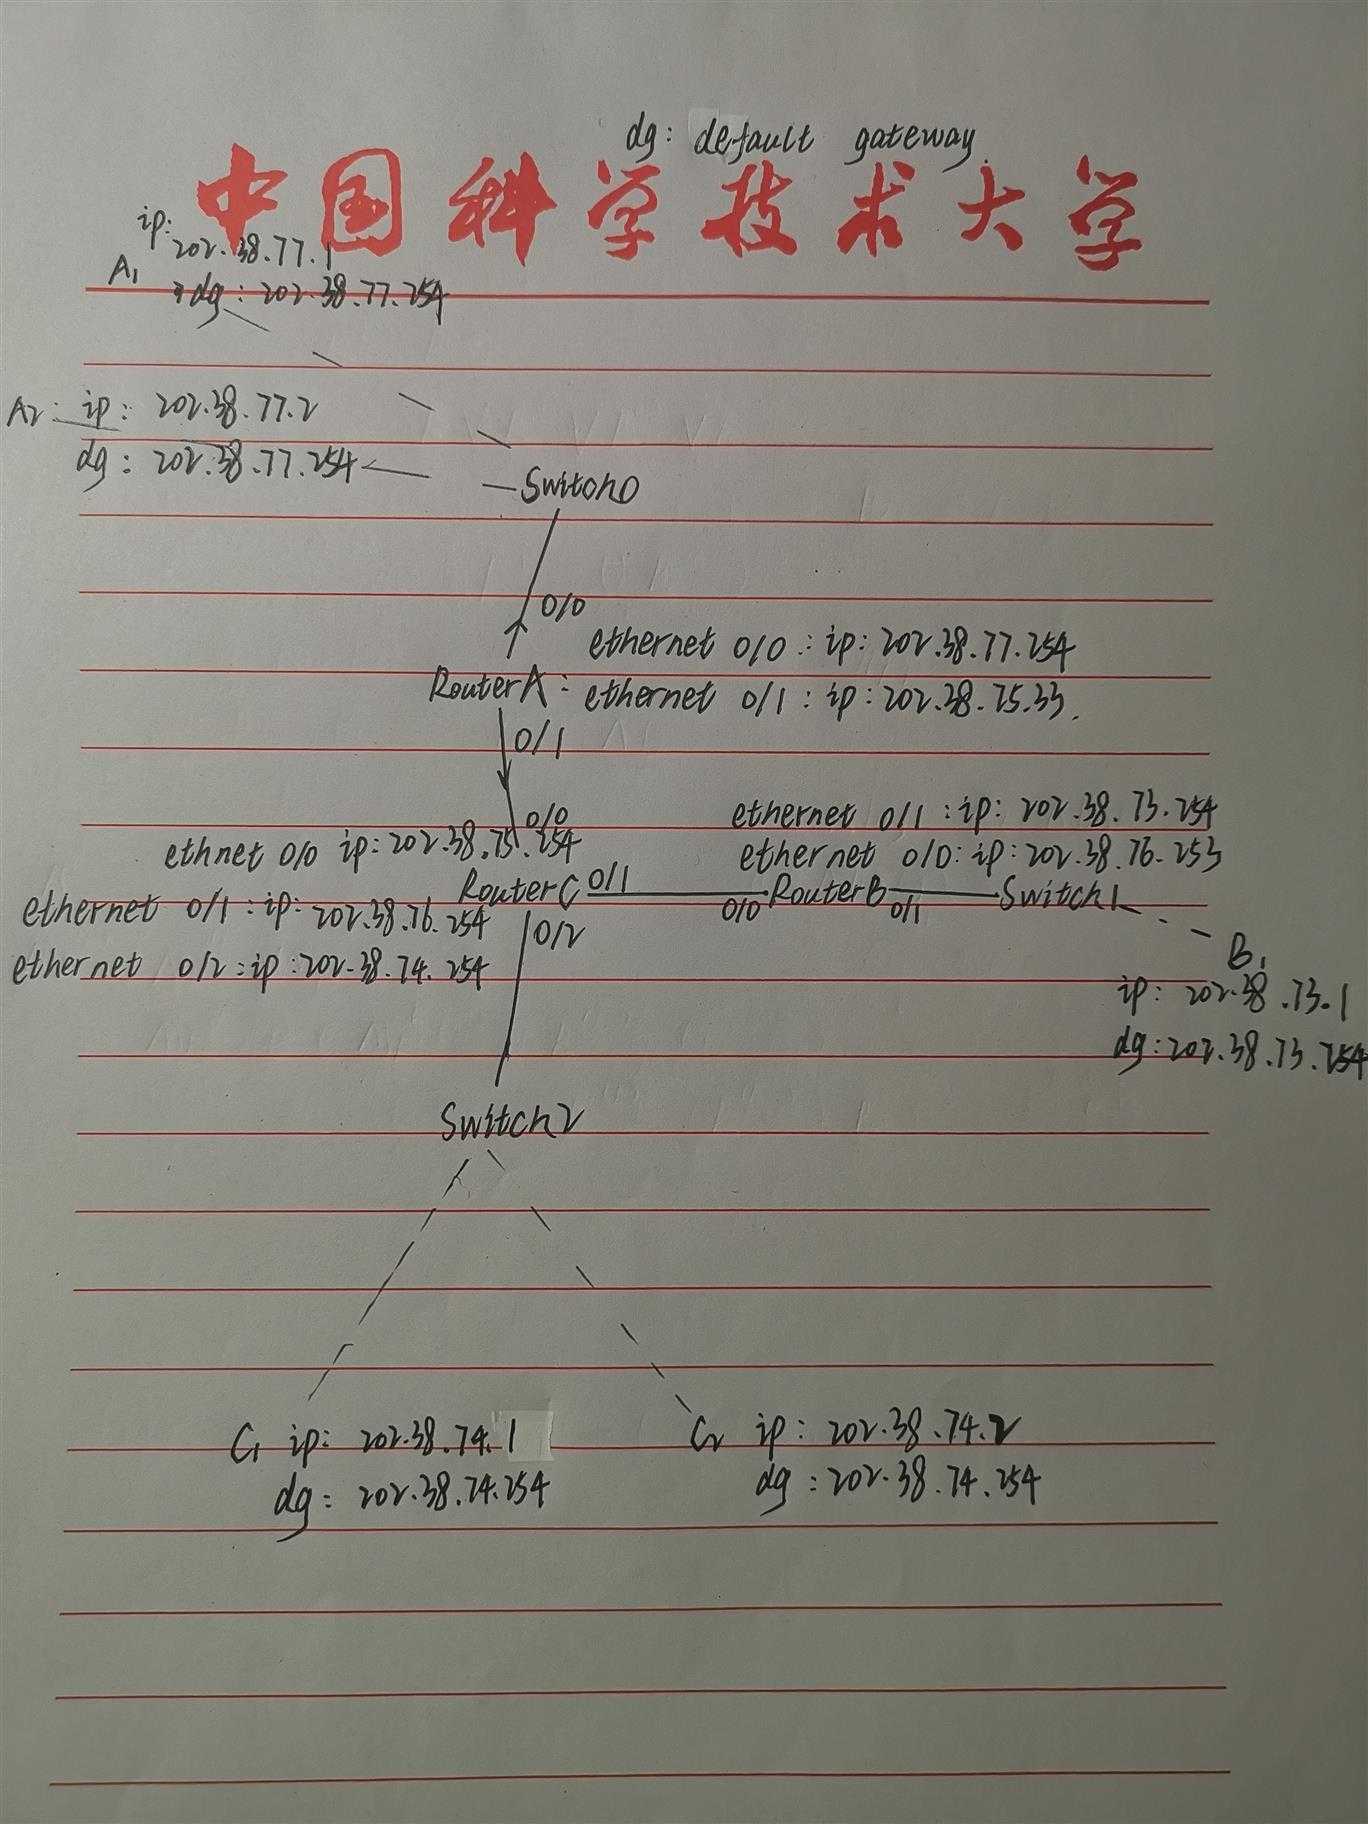 dg: default gateway.
中国科学技术大学
ip:
202.38.77.1
A1
dg: 202.38.77.254
A2: ip: 202.38.77.2
dg: 202.38.77.254
Switch0
0/0
ethernet 0/0: ip: 202.38.77.254
RouterA: ethernet 0/1: ip: 202.38.75.33.
0/1
0/0
ethernet 0/1: ip: 202.38.73.254
ethnet 0/0 ip: 202.38.75.254
ethernet 0/0: ip: 202.38.76.253
RouterC 0/1 0/0 RouterB 0/1 Switch1
ethernet 0/1: ip: 202.38.76.254
0/2
B1
ethernet 0/2: ip: 202.38.74.254
ip: 202.38.73.1
dg: 202.38.73.254
Switch2
C1 ip: 202.38.74.1
C2 ip: 202.38.74.2
dg: 202.38.74.254
dg: 202.38.74.254